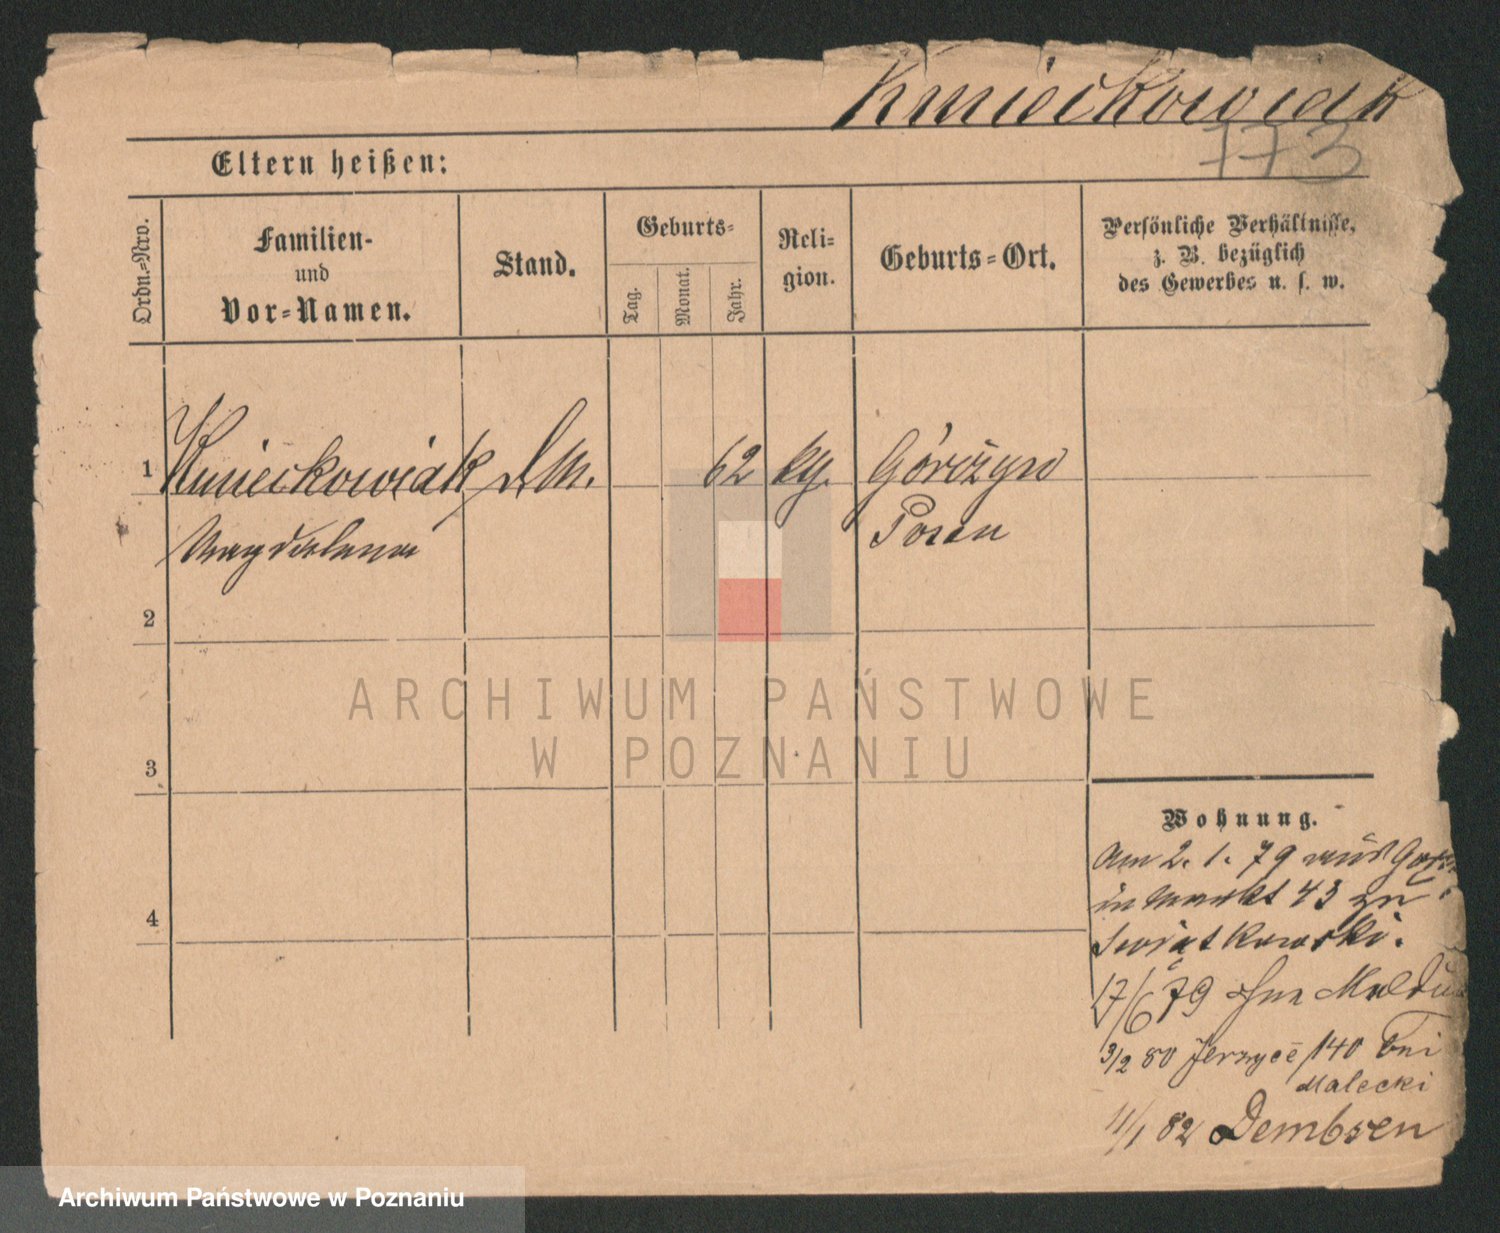 Kmieckowiak
773
Eltern heißen:
Ordn.-Nro.
Familien-
und
Vor-Namen.
Stand.
Geburts-
Tag.
Monat.
Jahr.
Reli-
gion.
Geburts-Ort.
Persönliche Verhältnisse,
z. B. bezüglich
des Gewerbes u. s. w.
1 Kmieckowiak 62 Górczyn
Magdalena Posen
2
3
4
ARCHIWUM PAŃSTWOWE
W POZNANIU
Wohnung.
Am 2. 1. 79 aus
in Markt 43 zu
Swiątkowski.
17/6 79 ohne
3/2 80 Jerzyce 140 bei
Malecki
11/1 82 Dembsen
Archiwum Państwowe w Poznaniu